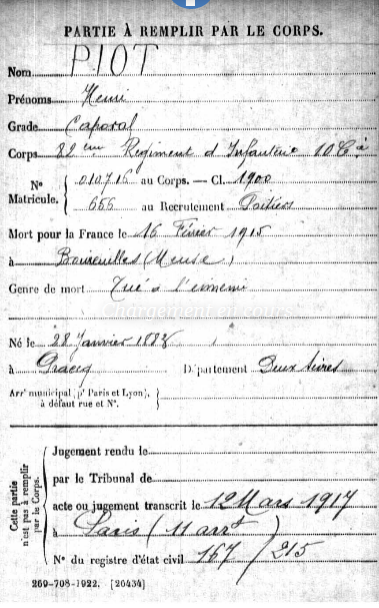 PARTIE À REMPLIR PAR LE CORPS.
Nom PIOT
Prénoms Henri
Grade Caporal
Corps 82 eme Regiment d'Infanterie 10 Cie
No Matricule. { 010716 au Corps. — Cl. 1900
656 au Recrutement Poitiers
Mort pour la France le 16 Février 1915
à Boureuilles (Meuse)
Genre de mort Tué à l'ennemi
Né le 28 Janvier
à Département Deux Sèvres
Arrt municipal (pr Paris et Lyon), à défaut rue et No.
Cette partie n'est pas à remplir par le Corps.
Jugement rendu le
par le Tribunal de
acte ou jugement transcrit le 12 Mars 1917
à Paris (11 arrt)
No du registre d'état civil 167/215
269-708-1922. [26434]